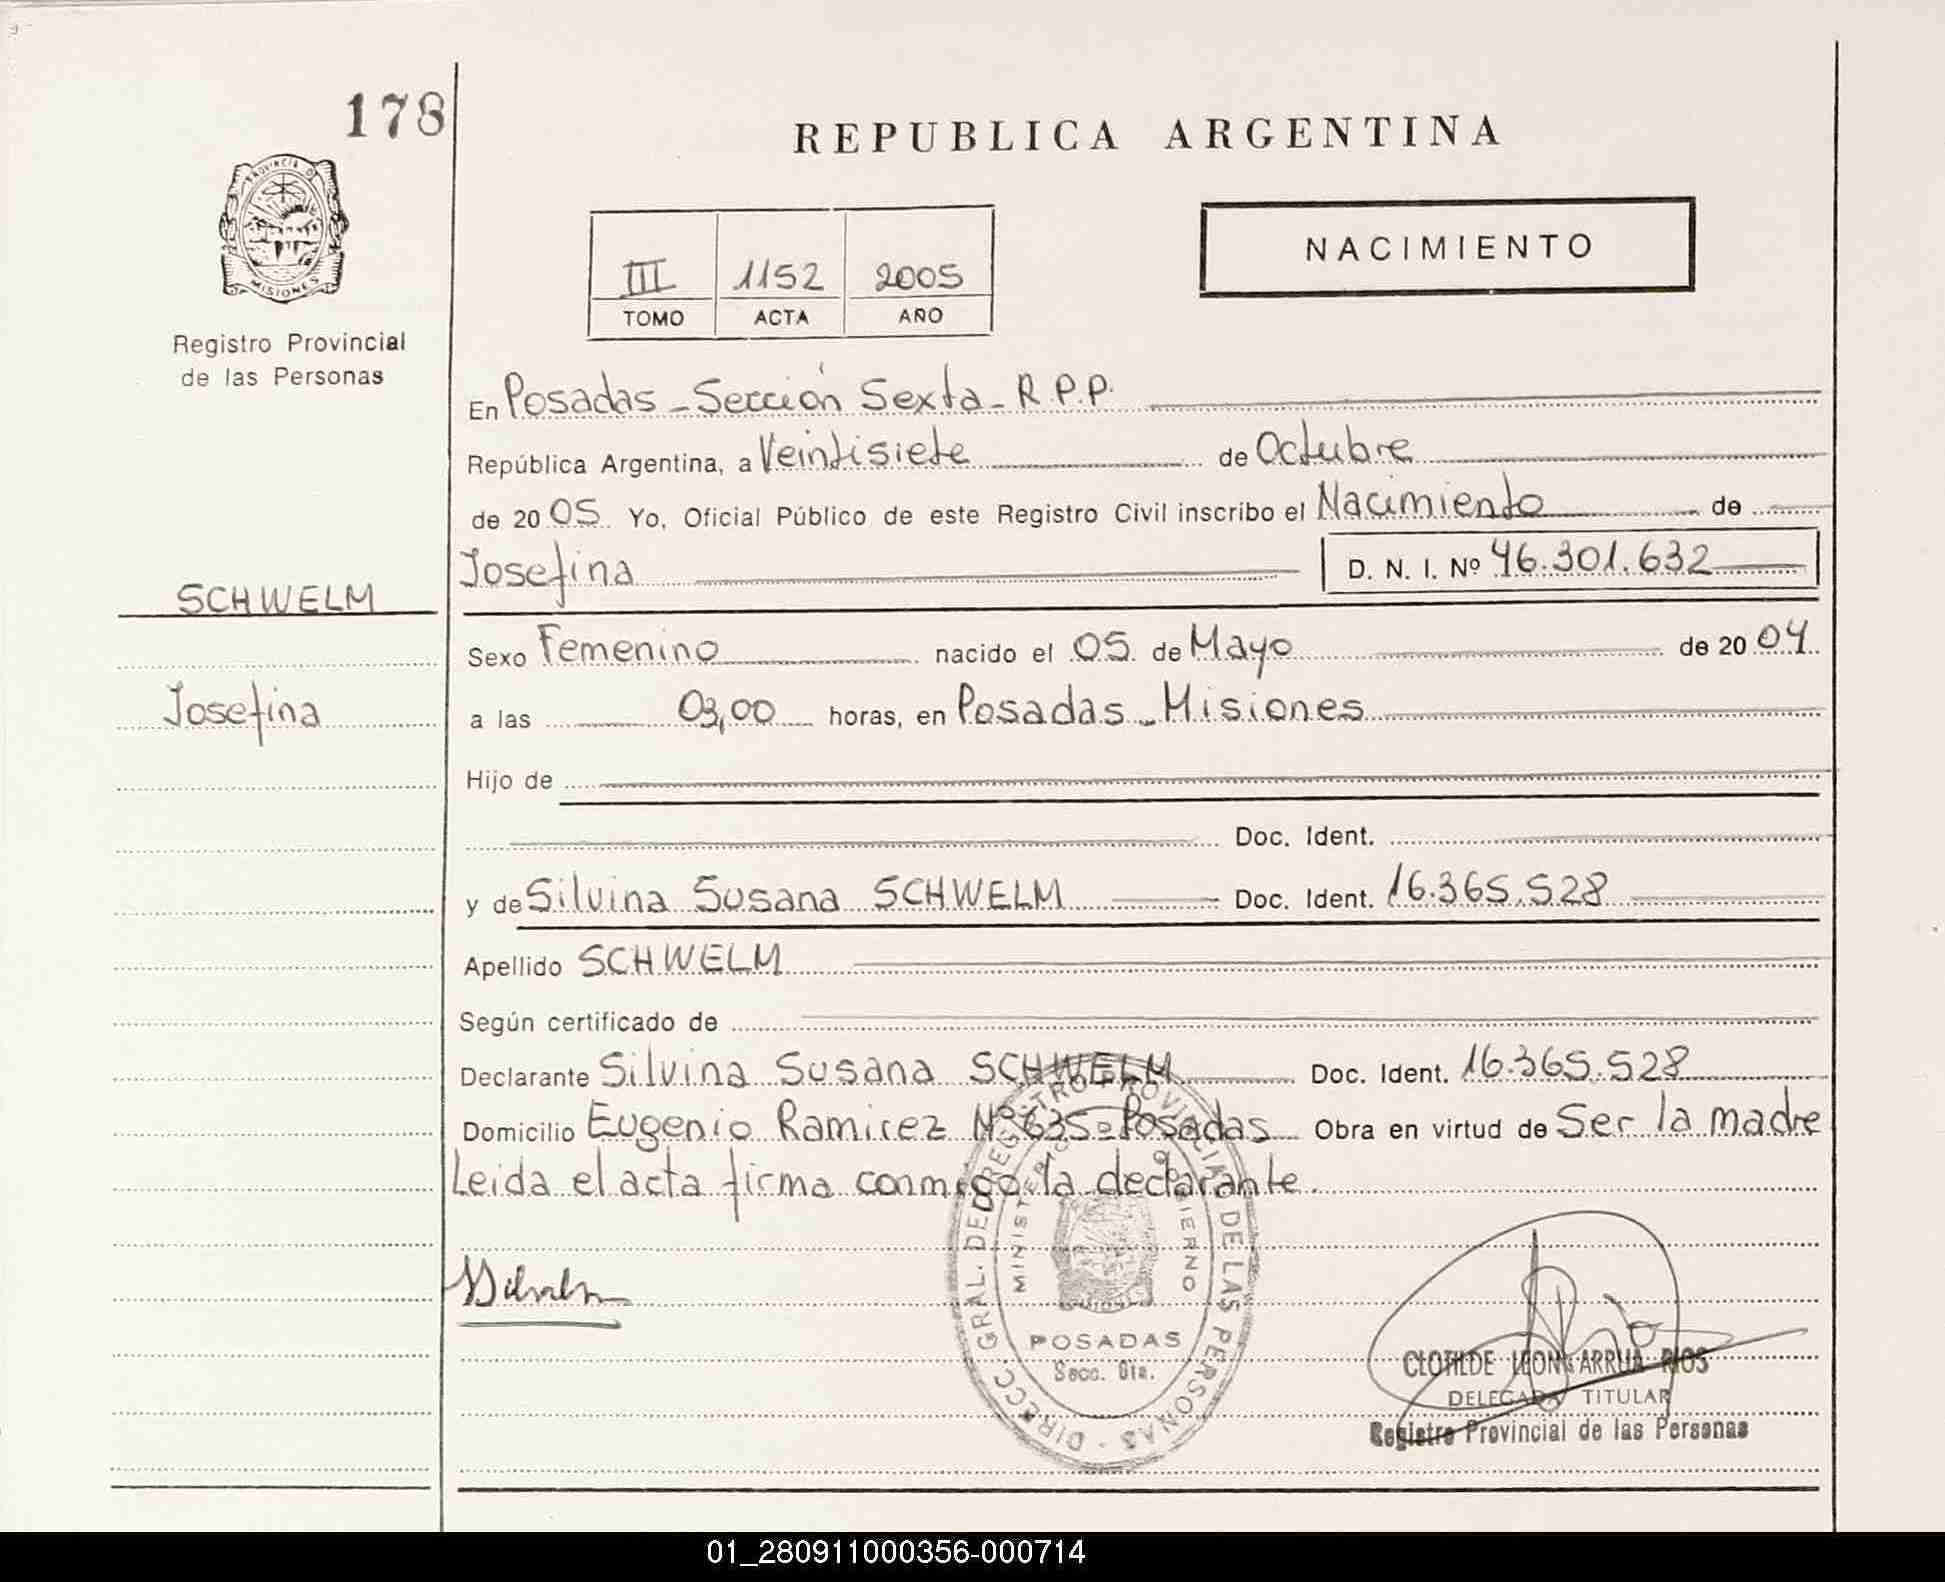 178
REPUBLICA ARGENTINA
PROVINCIA DE
MISIONES
NACIMIENTO
III 1152 2005
TOMO ACTA AÑO
Registro Provincial
de las Personas
En Posadas - Sección Sexta - R.P.P.
República Argentina, a Veintisiete de Octubre
de 2005 Yo, Oficial Público de este Registro Civil inscribo el Nacimiento de
Josefina D. N. I. Nº 46.301.632
SCHWELM
Sexo Femenino nacido el 05 de Mayo de 2004
Josefina
a las 03,00 horas, en Posadas - Misiones
Hijo de
Doc. Ident.
y de Silvina Susana SCHWELM Doc. Ident. 16.365.528
Apellido SCHWELM
Según certificado de
Declarante Silvina Susana SCHWELM Doc. Ident. 16.365.528
Domicilio Eugenio Ramirez Nº 635 - Posadas Obra en virtud de Ser la madre
Leida el acta firma conmigo la declarante.
DIRECC. GRAL. DEL REGISTRO PROVINCIAL DE LAS PERSONAS
MINISTERIO DE GOBIERNO
POSADAS
Secc. 6ta.
CLOTILDE LEONA ARRUA RIOS
DELEGADA TITULAR
Registro Provincial de las Personas
01_280911000356-000714